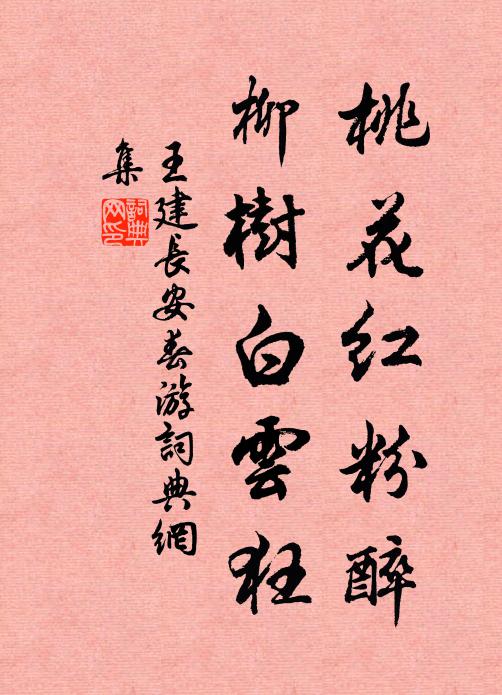 桃花红粉醉
柳樹白雲狂
王建長安春游詞典網
集
詞典
网印